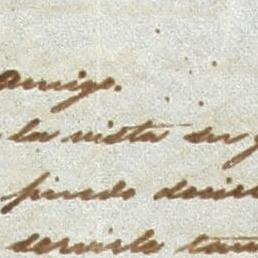 amigo.
la vista su
puedo decir
servirle tan